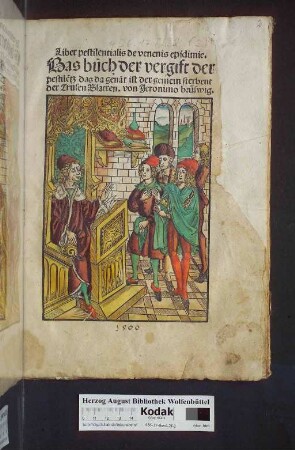 Liber pestilentialis de venenis epidimie.
Das buch der vergift der
pestilētz das da genāt ist der gemein sterbent
der Trüsen Blatren. von Jeronimo brüswig.
1500
Herzog August Bibliothek Wolfenbüttel
Kodak